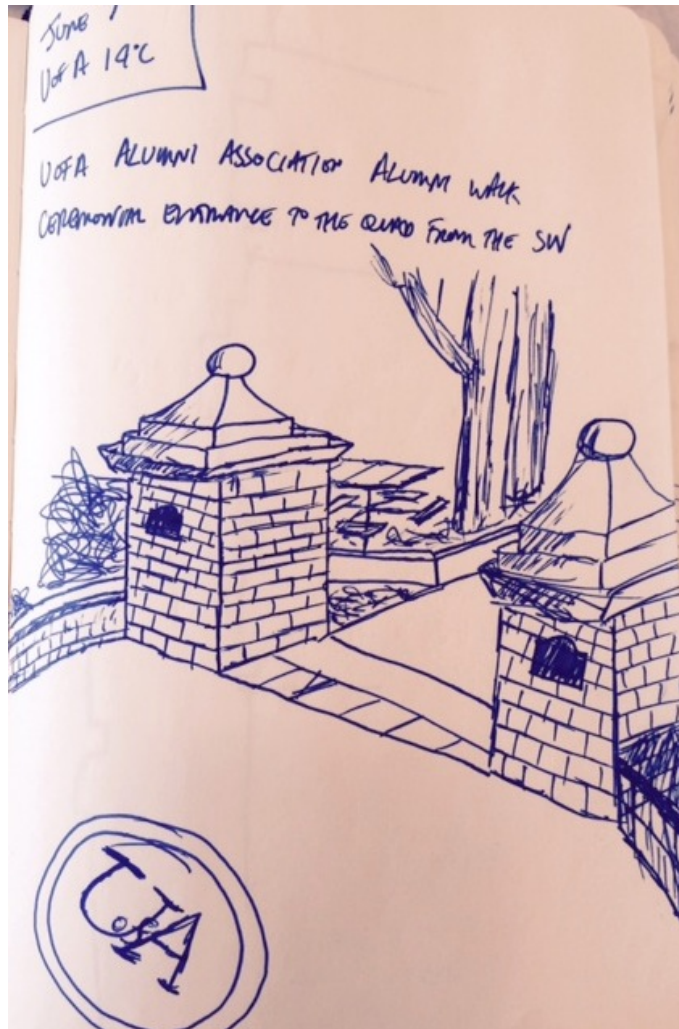 JUNE
UOFA 19°C
UOFA ALUMNI ASSOCIATION ALUMNI WALK
CEREMONIAL ENTRANCE TO THE QUAD FROM THE SW
UofA